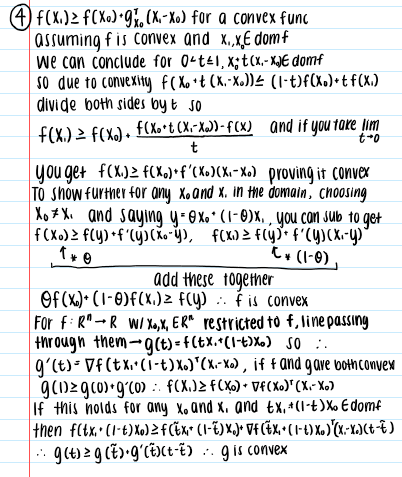 ④ f(x₁) ≥ f(x₀) + gᵀₓ₀(x₁-x₀) for a convex func
assuming f is convex and x₁,x₀∈domf
we can conclude for 0<t≤1, x₀+t(x₁-x₀)∈domf
so due to convexity f(x₀+t(x₁-x₀)) ≤ (1-t)f(x₀)+tf(x₁)
divide both sides by t so
f(x₁) ≥ f(x₀) + f(x₀+t(x₁-x₀))-f(x) / t and if you take lim t→0
you get f(x₁) ≥ f(x₀)+f'(x₀)(x₁-x₀) proving it convex
To show further for any x₀ and x₁ in the domain, choosing
x₀≠x₁ and saying y=θx₀+(1-θ)x₁, you can sub to get
f(x₀) ≥ f(y)+f'(y)(x₀-y), f(x₁) ≥ f(y)+f'(y)(x₁-y)
↑ * θ ↑ * (1-θ)
add these together
θf(x₀)+(1-θ)f(x₁) ≥ f(y) ∴ f is convex
For f: Rⁿ→R w/ x₀,x₁∈Rⁿ restricted to f, line passing
through them → g(t)=f(tx₁+(1-t)x₀) so ∴
g'(t)=∇f(tx₁+(1-t)x₀)ᵀ(x₁-x₀), if f and g ave both convex
g(1) ≥ g(0)+g'(0) ∴ f(x₁) ≥ f(x₀)+∇f(x₀)ᵀ(x₁-x₀)
If this holds for any x₀ and x₁ and tx₁+(1-t)x₀∈domf
then f(tx₁+(1-t)x₀) ≥ f(t̃x₁+(1-t̃)x₀)+∇f(t̃x₁+(1-t̃)x₀)ᵀ(x₁-x₀)(t-t̃)
∴ g(t) ≥ g(t̃)+g'(t̃)(t-t̃) ∴ g is convex